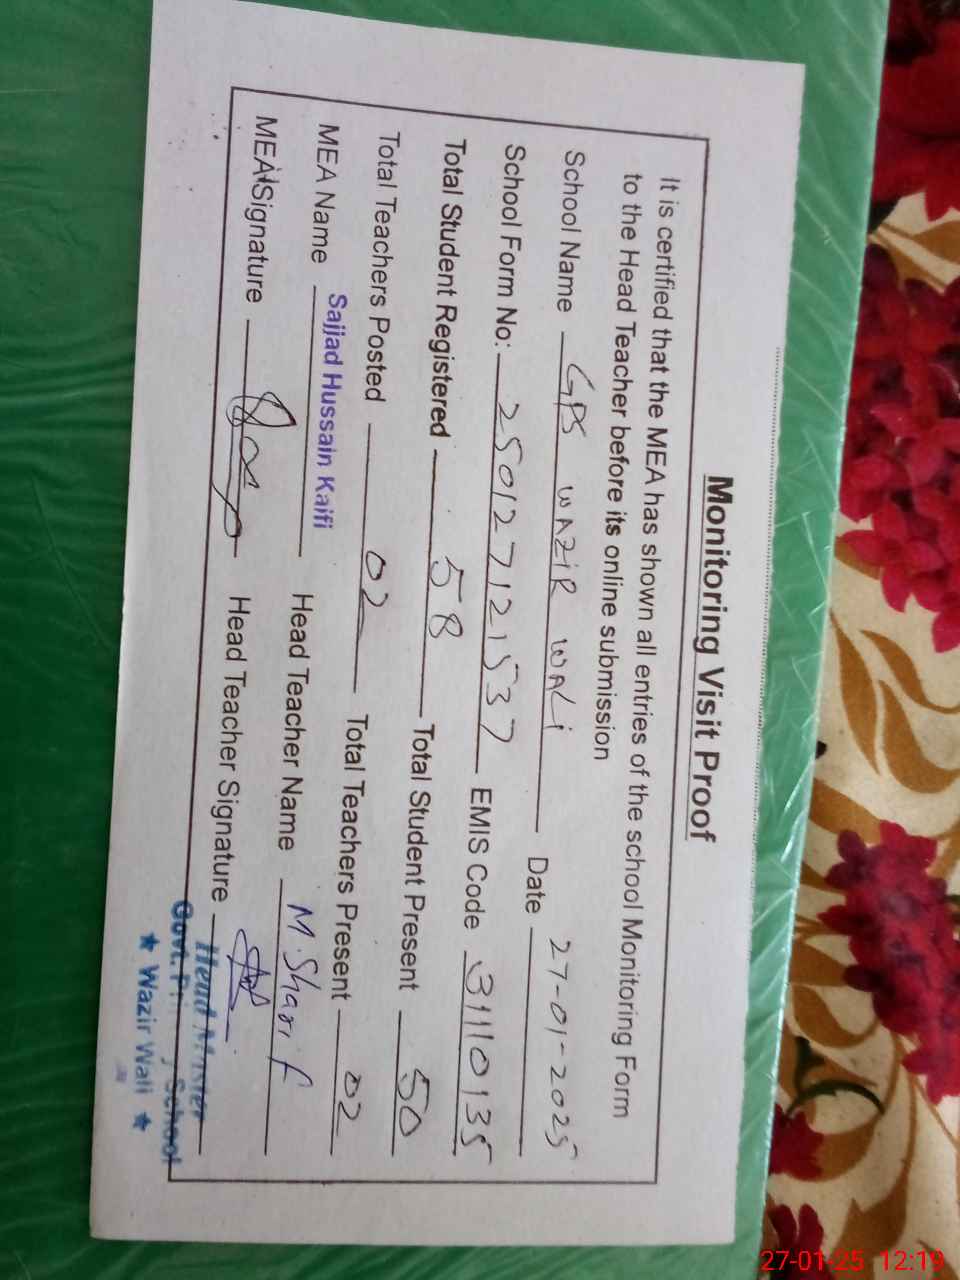 Monitoring Visit Proof
It is certified that the MEA has shown all entries of the school Monitoring Form
to the Head Teacher before its online submission
School Name GPS WAZIR WALi Date 27-01-2025
School Form No: 25012712537 EMIS Code 31110135
Total Student Registered 58 Total Student Present 50
Total Teachers Posted 02 Total Teachers Present 02
MEA Name Sajjad Hussain Kaifi Head Teacher Name M. Sharif
MEA Signature Head Teacher Signature
Head Master
Govt. School
★ Wazir Wali ★
27-01-25 12:19